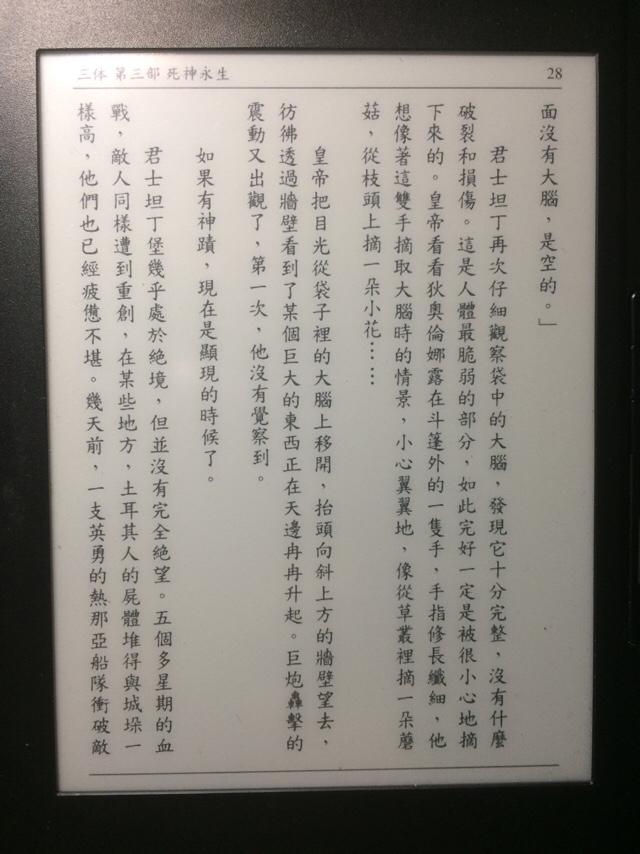 三体 第三部 死神永生
28
面沒有大腦，是空的。」
君士坦丁再次仔細觀察袋中的大腦，發現它十分完整，沒有什麼
破裂和損傷。這是人體最脆弱的部分，如此完好一定是被很小心地摘
下來的。皇帝看看狄奧倫娜露在斗篷外的一隻手，手指修長纖細，他
想像著這雙手摘取大腦時的情景，小心翼翼地，像從草叢裡摘一朵蘑
菇，從枝頭上摘一朵小花……
皇帝把目光從袋子裡的大腦上移開，抬頭向斜上方的牆壁望去，
彷彿透過牆壁看到了某個巨大的東西正在天邊冉冉升起。巨炮轟擊的
震動又出觀了，第一次，他沒有覺察到。
如果有神蹟，現在是顯現的時候了。
君士坦丁堡幾乎處於絕境，但並沒有完全絕望。五個多星期的血
戰，敵人同樣遭到重創，在某些地方，土耳其人的屍體堆得與城垛一
樣高，他們也已經疲憊不堪。幾天前，一支英勇的熱那亞船隊衝破敵